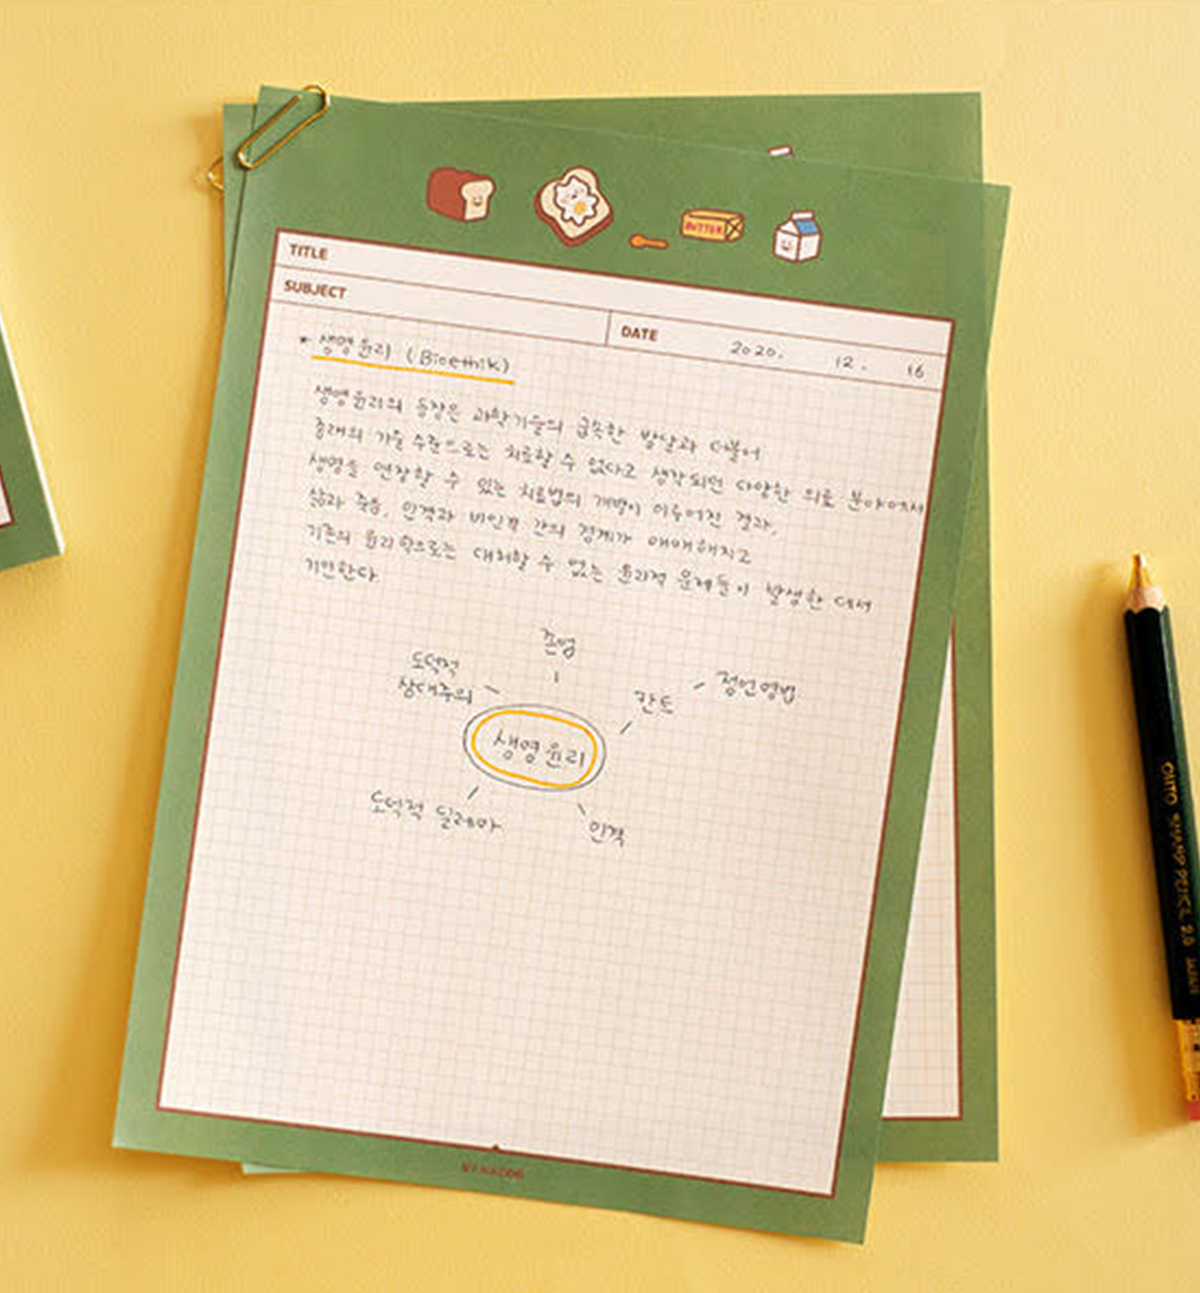 BUTTER
TITLE
SUBJECT
DATE 2020. 12. 16
* 생명윤리 (Bioethik)
생명윤리의 등장은 과학기술의 급속한 발달과 더불어
종래의 기술 수준으로는 치료할 수 없다고 생각되던 다양한 의료 분야에서
생명을 연장할 수 있는 치료법의 개발이 이루어진 결과,
삶과 죽음, 인격과 비인격 간의 경계가 애매해지고
기존의 윤리학으로는 대처할 수 없는 윤리적 문제들이 발생한 데서
기인한다.
존엄
도덕적
상대주의
칸트
정언명법
생명윤리
도덕적 딜레마
인격
OHTO SHARP PENCIL 2.0 JAPAN